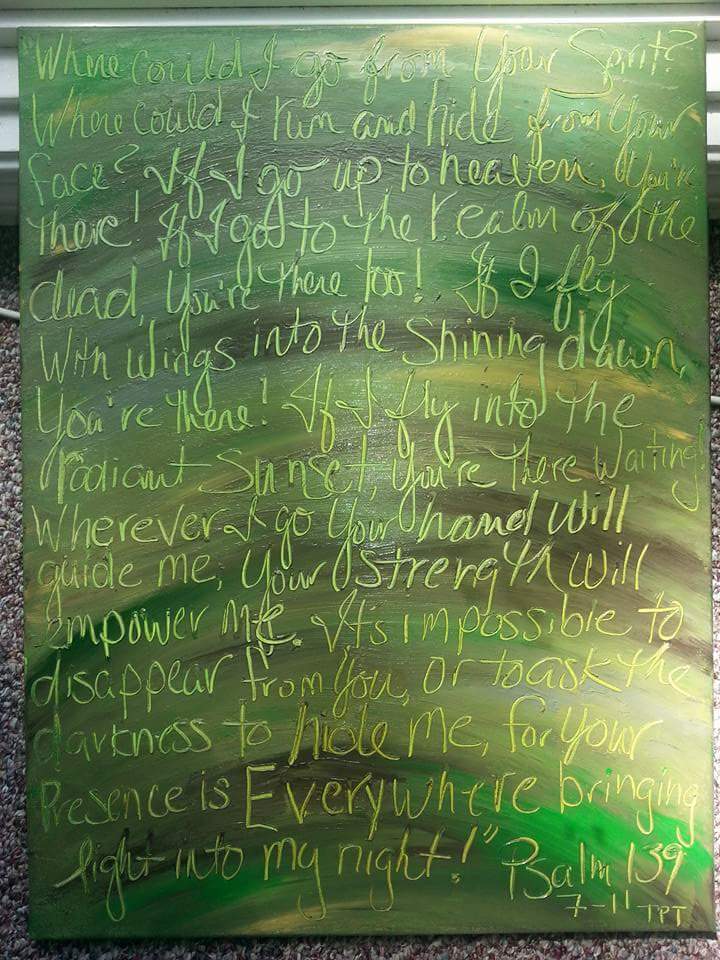 "Where could I go from Your Spirit?
Where could I run and hide from Your
face? If I go up to heaven, You're
there! If I go to the realm of the
dead, You're there too! If I fly
With wings into the shining dawn,
You're there! If I fly into the
radiant sunset, You're there waiting!
Wherever I go Your hand will
guide me, Your strength will
empower me. It's impossible to
disappear from You, or to ask the
darkness to hide me, for Your
Presence is Everywhere bringing
light into my night!" Psalm 139
7-11 TPT